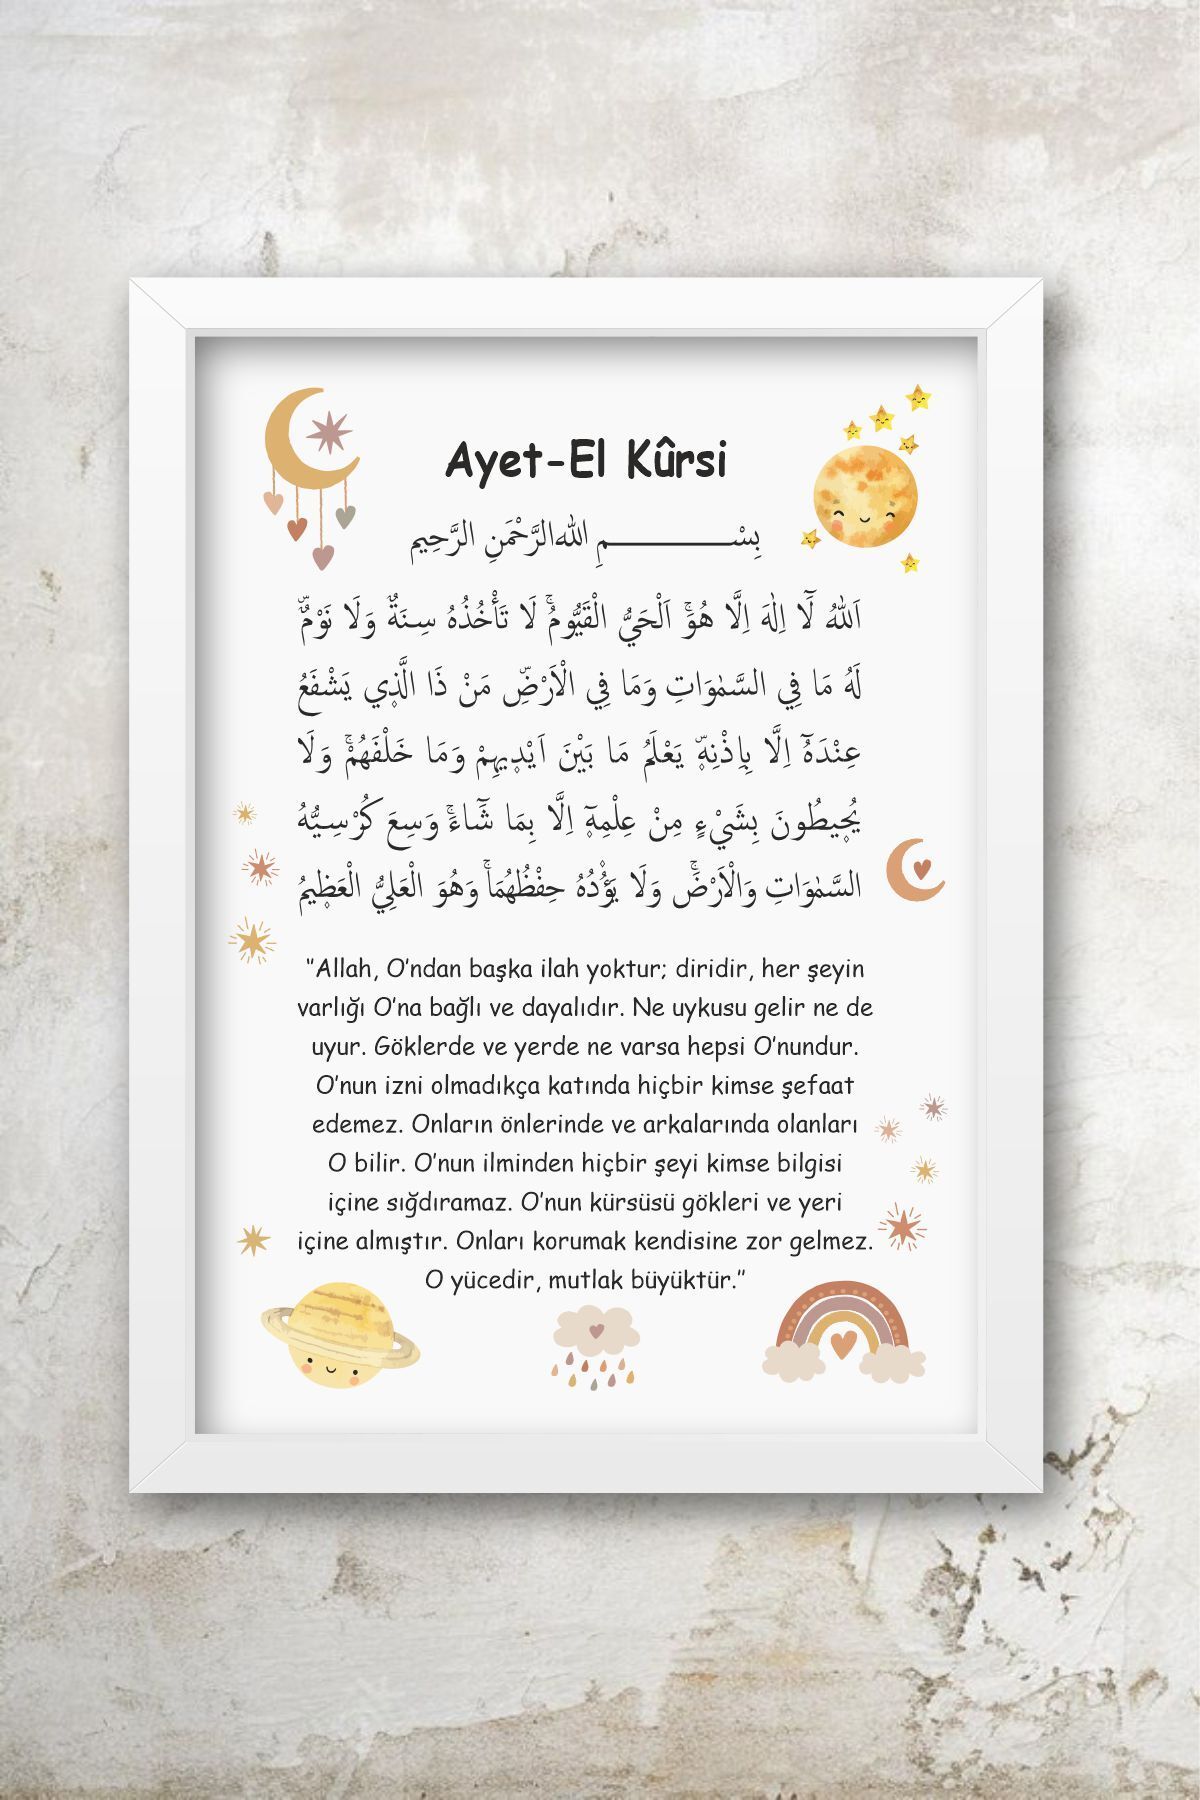 Ayet-El Kûrsi
بِسْـــــــــــــمِ اللهِ الرَّحْمَنِ الرَّحِيم
اَللّٰهُ لَٓا اِلٰهَ اِلَّا هُوَۚ اَلْحَيُّ الْقَيُّومُۚ لَا تَأْخُذُهُ سِنَةٌ وَلَا نَوْمٌۜ
لَهُ مَا فِي السَّمٰوَاتِ وَمَا فِي الْاَرْضِۜ مَنْ ذَا الَّذ۪ي يَشْفَعُ
عِنْدَهُٓ اِلَّا بِاِذْنِه۪ۜ يَعْلَمُ مَا بَيْنَ اَيْد۪يهِمْ وَمَا خَلْفَهُمْۚ وَلَا
يُح۪يطُونَ بِشَيْءٍ مِنْ عِلْمِه۪ٓ اِلَّا بِمَا شَٓاءَۚ وَسِعَ كُرْسِيُّهُ
السَّمٰوَاتِ وَالْاَرْضَۚ وَلَا يَؤُ۫دُهُ حِفْظُهُمَاۚ وَهُوَ الْعَلِيُّ الْعَظ۪يمُ
"Allah, O'ndan başka ilah yoktur; diridir, her şeyin
varlığı O'na bağlı ve dayalıdır. Ne uykusu gelir ne de
uyur. Göklerde ve yerde ne varsa hepsi O'nundur.
O'nun izni olmadıkça katında hiçbir kimse şefaat
edemez. Onların önlerinde ve arkalarında olanları
O bilir. O'nun ilminden hiçbir şeyi kimse bilgisi
içine sığdıramaz. O'nun kürsüsü gökleri ve yeri
içine almıştır. Onları korumak kendisine zor gelmez.
O yücedir, mutlak büyüktür."